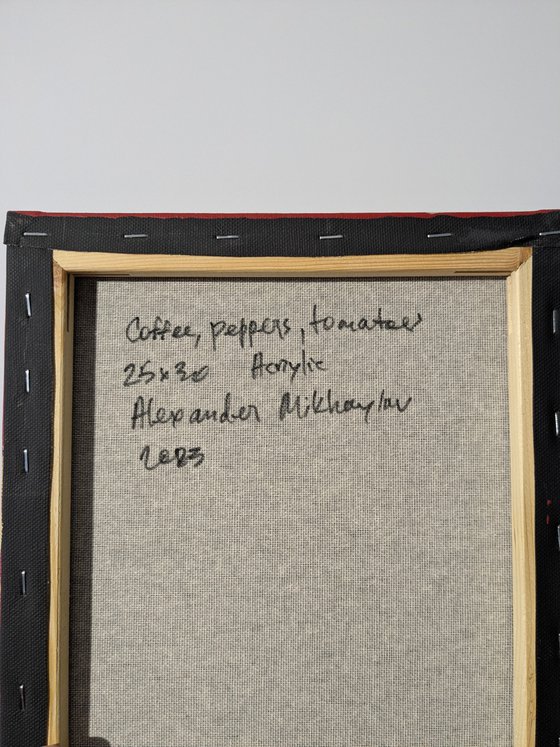 Coffee, peppers, tomatoes
25x30 Acrylic
Alexander Mikhaylov
2023